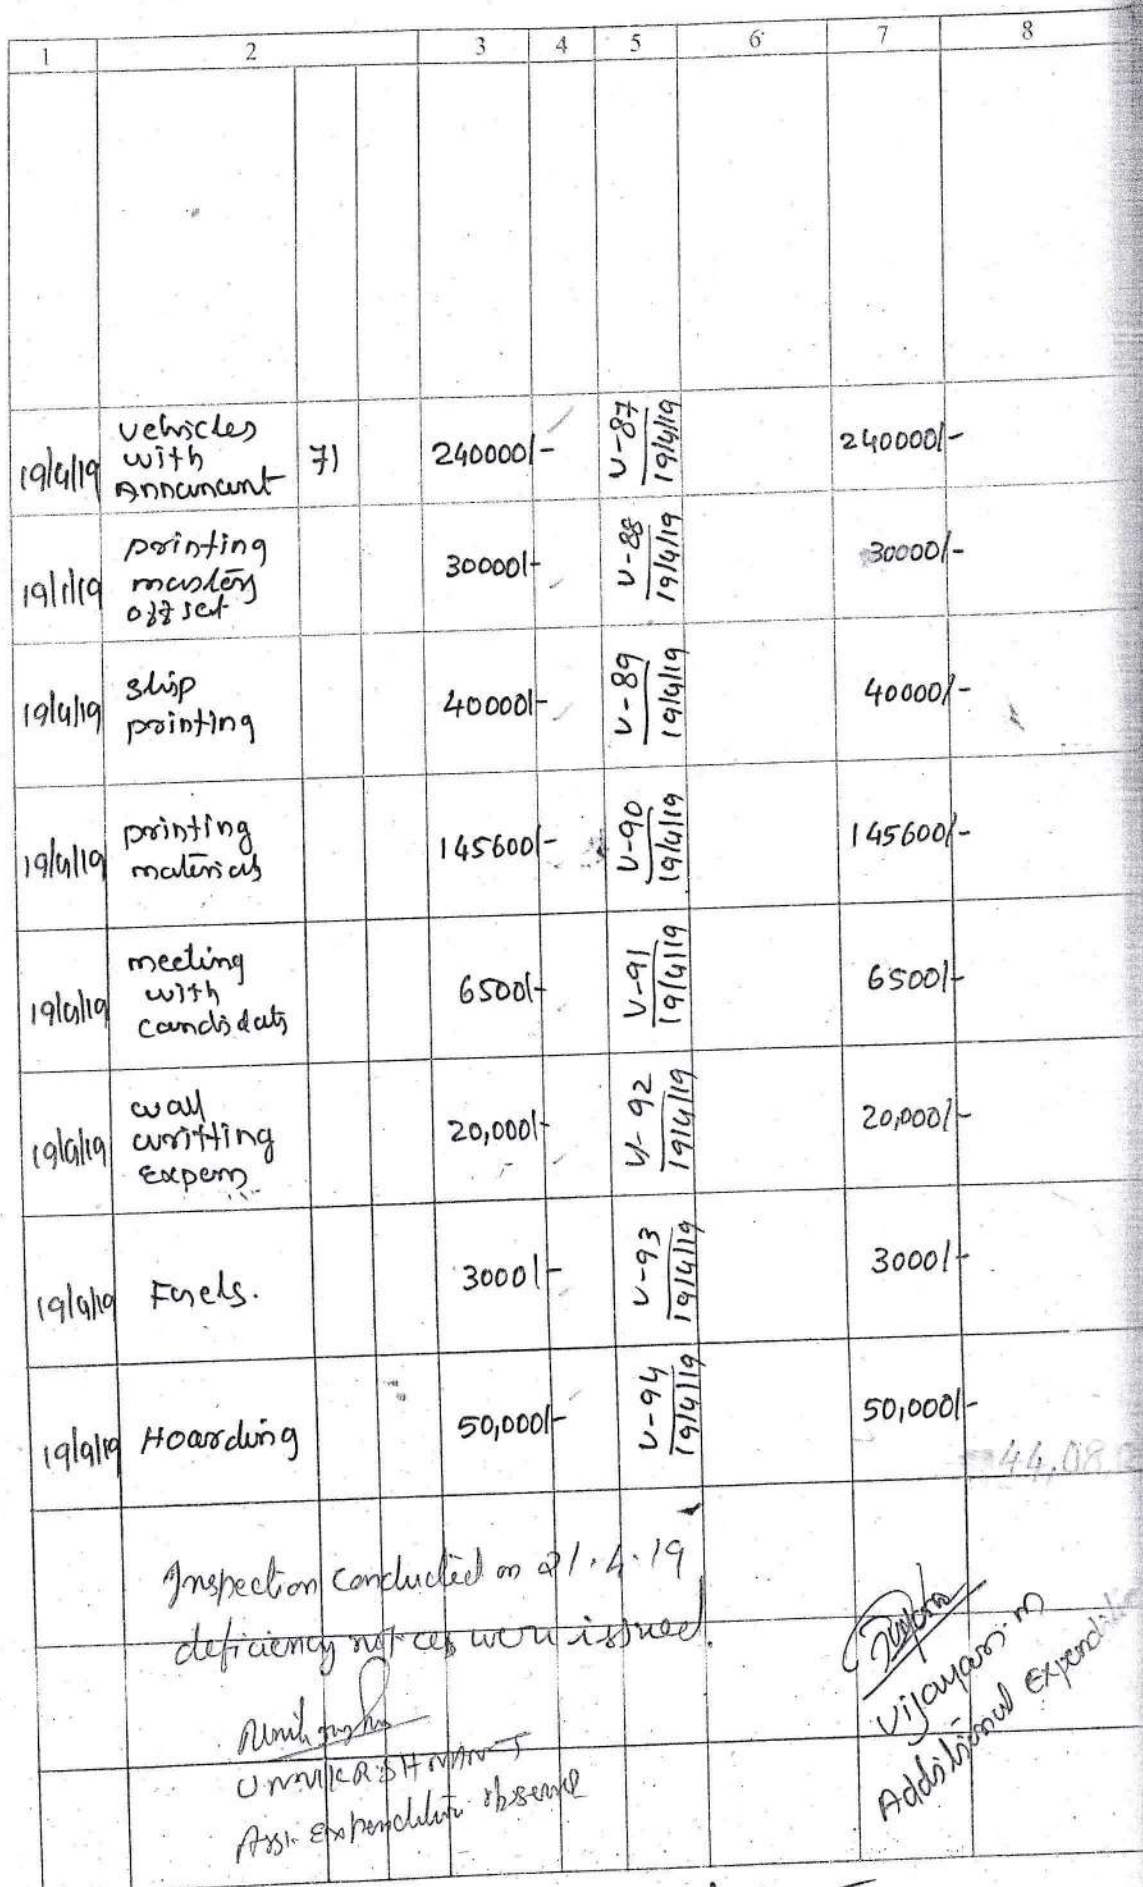 1 2 3 4 5 6 7 8
19/4/19 vehicles with Announcant 71 240000/- V-87 19/4/19 240000/-
19/4/19 printing masters offset 30000/- V-88 19/4/19 30000/-
19/4/19 slip printing 40000/- V-89 19/4/19 40000/-
19/4/19 printing materials 145600/- V-90 19/4/19 145600/-
19/4/19 meeting with candidats 6500/- V-91 19/4/19 6500/-
19/4/19 wall writting Expens 20,000/- V-92 19/4/19 20,000/-
19/4/19 Fuels. 3000/- V-93 19/4/19 3000/-
19/4/19 Hoarding 50,000/- V-94 19/4/19 50,000/-
44,08,
Inspection conducted on 21.4.19
deficiency notices were issued.
UNNIKRISHNAN T
Asst. Expenditure observer
Vijayasri.m
Additional Expenditure